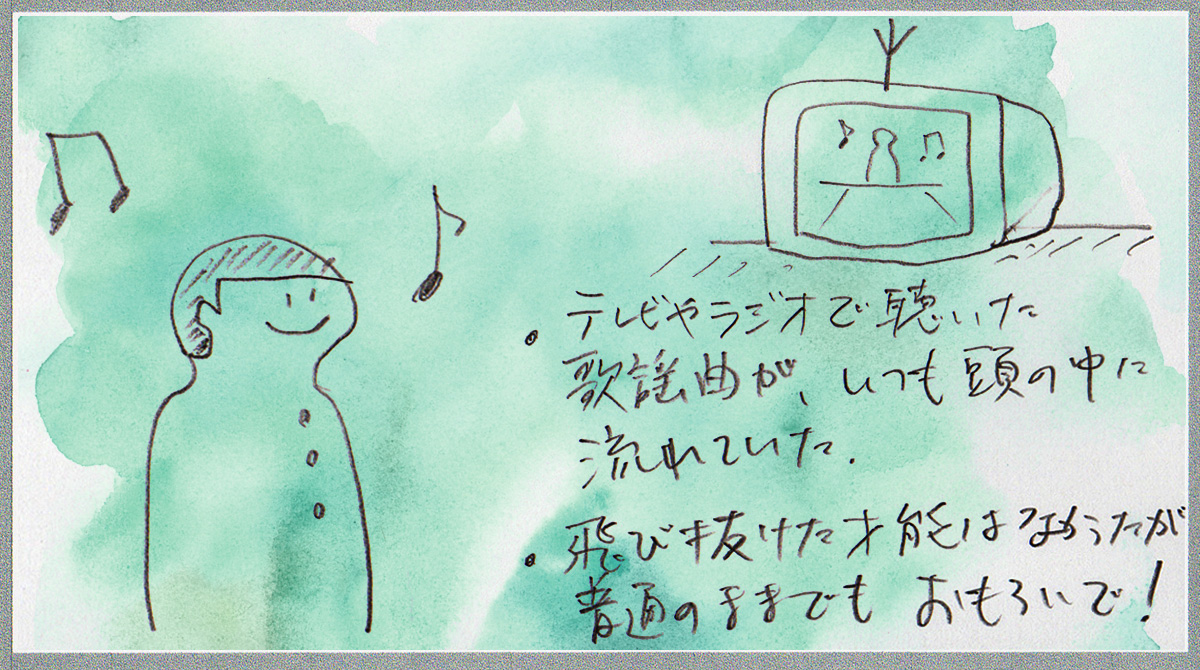 ・テレビやラジオで聴いた
歌謡曲が、いつも頭の中に
流れていた.
・飛び抜けた才能はなかったが
普通のままでも おもろいで!